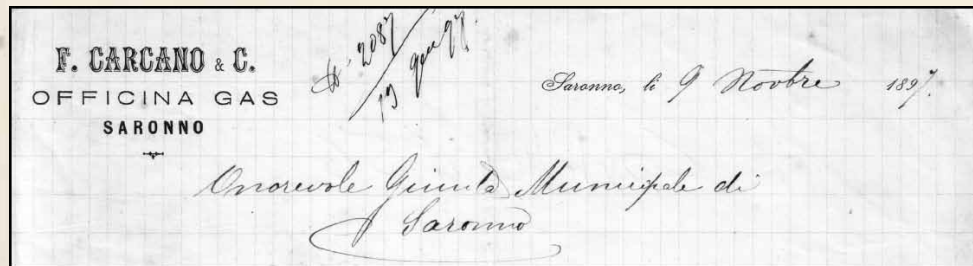 F. CARCANO & C.
OFFICINA GAS
SARONNO
N. 2087
19 9bre 97
Saronno, li 9 Novbre 1897.
Onorevole Giunta Municipale di
Saronno